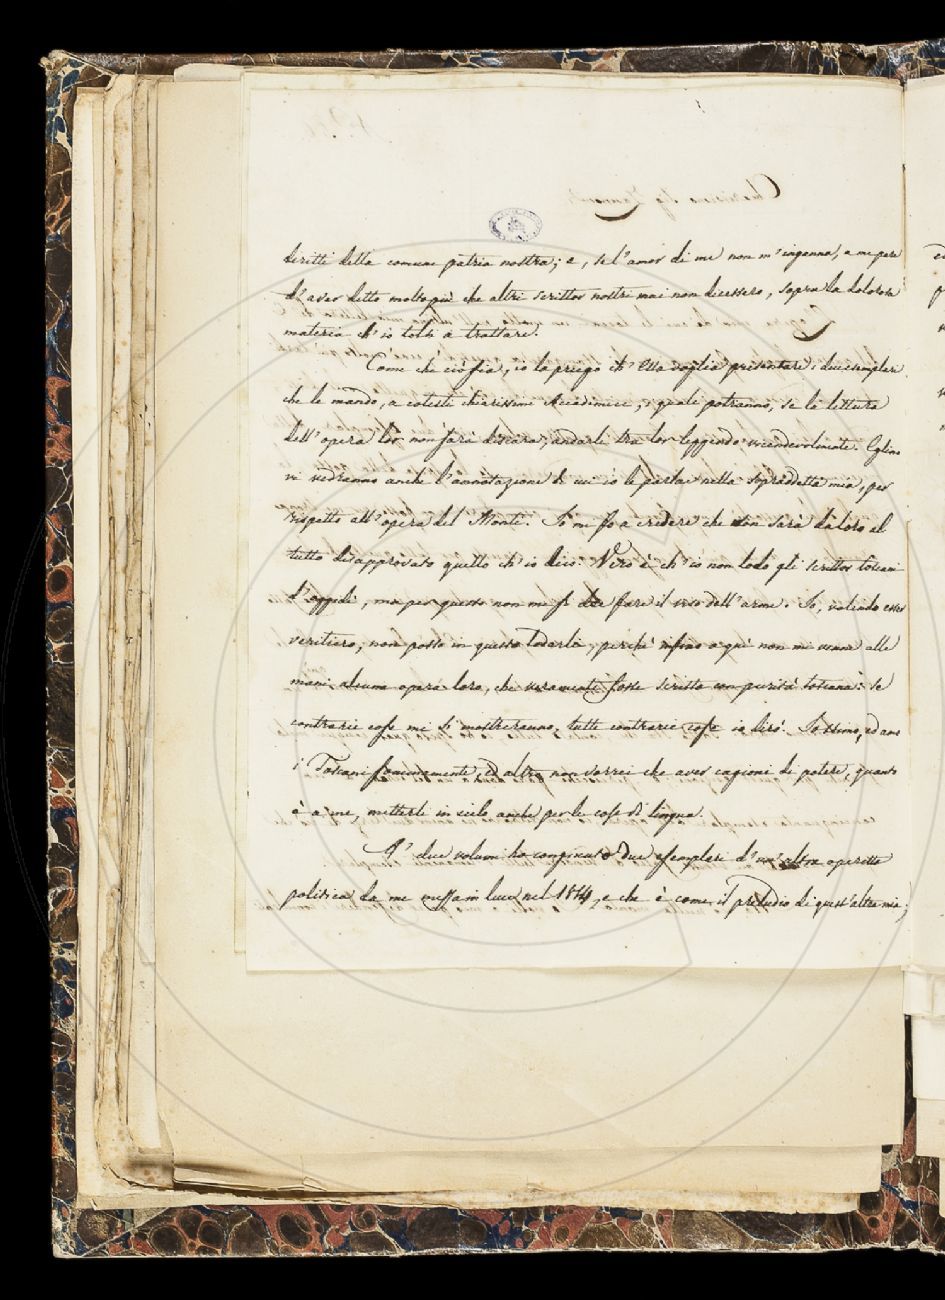 diritti della comune patria nostra; e, se l'amor di me non m'inganna, a me pare
d'aver detto molto più che altri scrittor nostri mai non dicessero, sopra la dolorosa
materia ch'io tolsi a trattare.
Come che ciò sia, io la priego ch'Essa voglia presentare i due esemplari
che le mando, a cotesti chiarissimi Accademici, i quali potranno, se la lettura
dell'opera lor non sarà discara, andarla tra lor leggendo vicendevolmente. Eglino
vi vedranno anche l'annotazione di cui io le parlai nella sopraddetta mia, per
rispetto all'opera del Monti. Io mi fo a credere che non sarà da loro al
tutto disapprovato quello ch'io dico. Vero è ch'io non lodo gli scrittor toscani
d'oggidì, ma per questo non mi si dee fare il viso dell'arme. Io, volendo esser
veritiero, non posso in questo lodarli, perché infino a qui non mi venne alle
mani alcuna opera loro, che veramente fosse scritta con purità toscana: se
contrarie cose mi si mostreranno, tutte contrarie cose io dirò. Io stimo, ed amo
i Toscani sommamente, ed altro non vorrei che aver cagioni di potere, quanto
è a me, metterli in cielo anche per le cose di lingua.
A' due volumi ho congiunto due esemplari d'un'altra operetta
politica da me messa in luce nel 1814, e che è come il preludio di quest'altra mia;